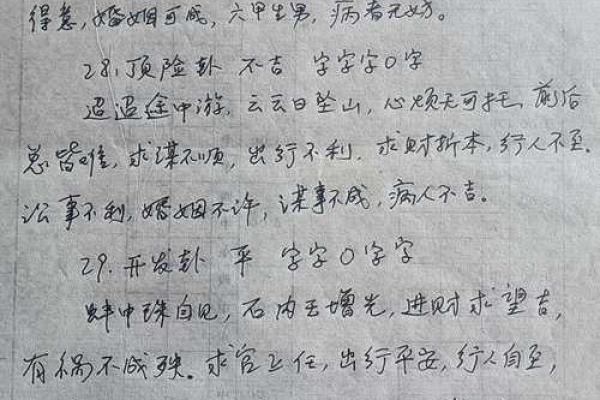 得意,婚姻可成,六甲生男,病者无妨。
28.顶险卦 不吉 字字字〇字
迢迢途中游,云云日坠山,心烦无可托,前后
总皆难,求谋不顺,出行不利.求财折本,行人不至.
讼事不利,婚姻不许,谋事不成,病人不吉。
29.开发卦 平 字字〇字字
蚌中珠自见,石内玉增光,进财求望吉,
有祸不成殃。求官上任,出行平安,行人自至,